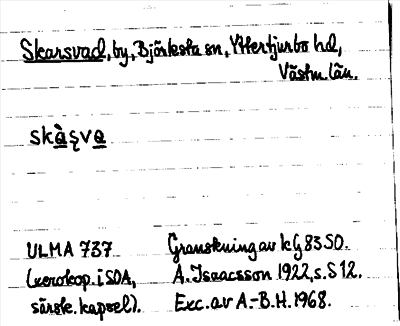 Skarsvad, by, Björksta sn, Yttertjurbo hd,
Västm. län.
skàşva
ULMA 737 Granskning av kG 83 SO.
(xerokop. i SOA, A. Isaacsson 1922, s. S 12.
särsk. kapsel). Exc. av A.-B.H. 1968.